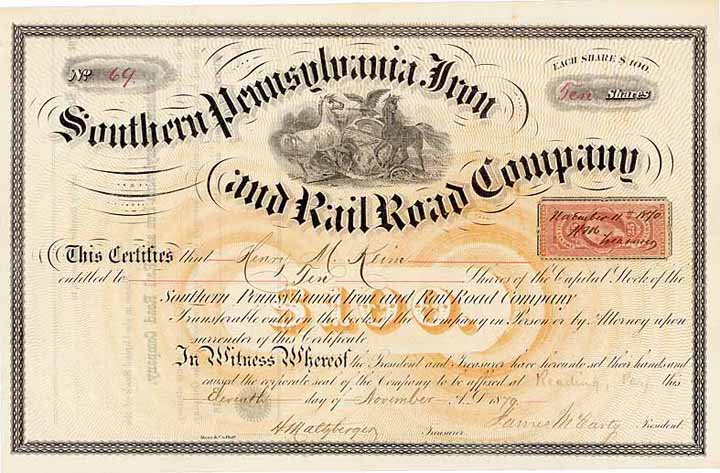 No. 69
EACH SHARE $100.
Ten Shares
Southern Pennsylvania Iron
and Rail Road Company
November 11th 1870
Treasurer
This Certifies that Henry M. Keim
entitled to Ten Shares of the Capital Stock of the
Southern Pennsylvania Iron and Rail Road Company
$100.
Transferable only on the books of the Company in Person or by Attorney upon
surrender of this Certificate
In Witness Whereof the President and Treasurer have hereunto set their hands and
caused the corporate seal of the Company to be affixed at Reading, Pa, this
Eleventh day of November A.D. 1870
Treasurer
James McCarty President